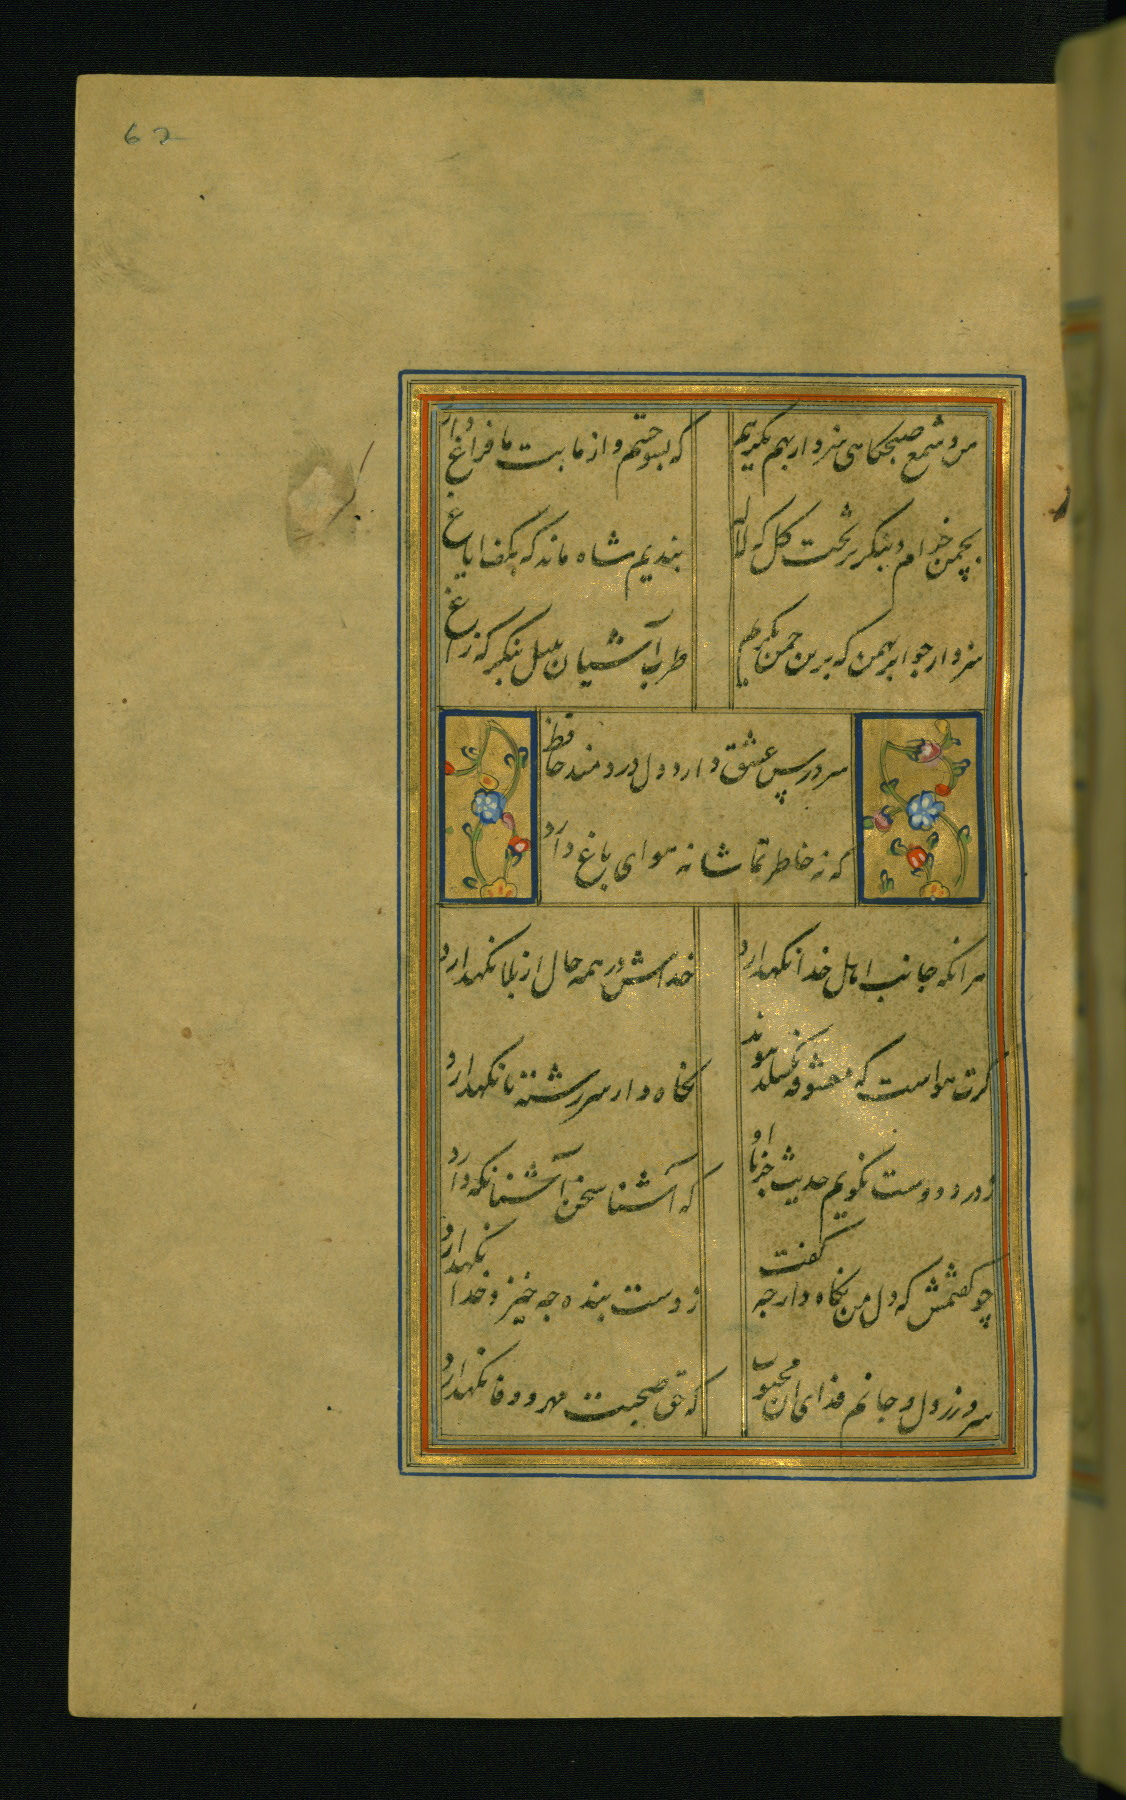 62
من و شمع صبحگاهی سزد ار بهم بگرییم
که بسوختیم و از ما بت ما فراغ دارد
بچمن خرام و بنگر بر تخت گل که لاله
بندیم شاه ماند که بکف ایاغ
سزد ار چو ابر بهمن که برین چمن بگریم
طرب آشیان بلبل بنگر که زاغ
سر درس عشق دارد دل دردمند حافظ
که نه خاطر تماشا نه هوای باغ دارد
هر انکه جانب اهل خدا نکهدارد
خداش در همه حال از بلا نکهدارد
کرت هواست که معشوقه نکسلد پیوند
نکاه دار سر رشته تا نکهدارد
ز درد دوست نکویم حدیث جز با او
که آشنا سخن آشنا نکه دارد
چو کفتمش که دل من نکاه دار چه کفت
ز دست بنده چه خیزد خدا نکهدارد
سر و زر و دل و جانم فدای ان محبوب
که حق صحبت مهر و وفا نکهدارد